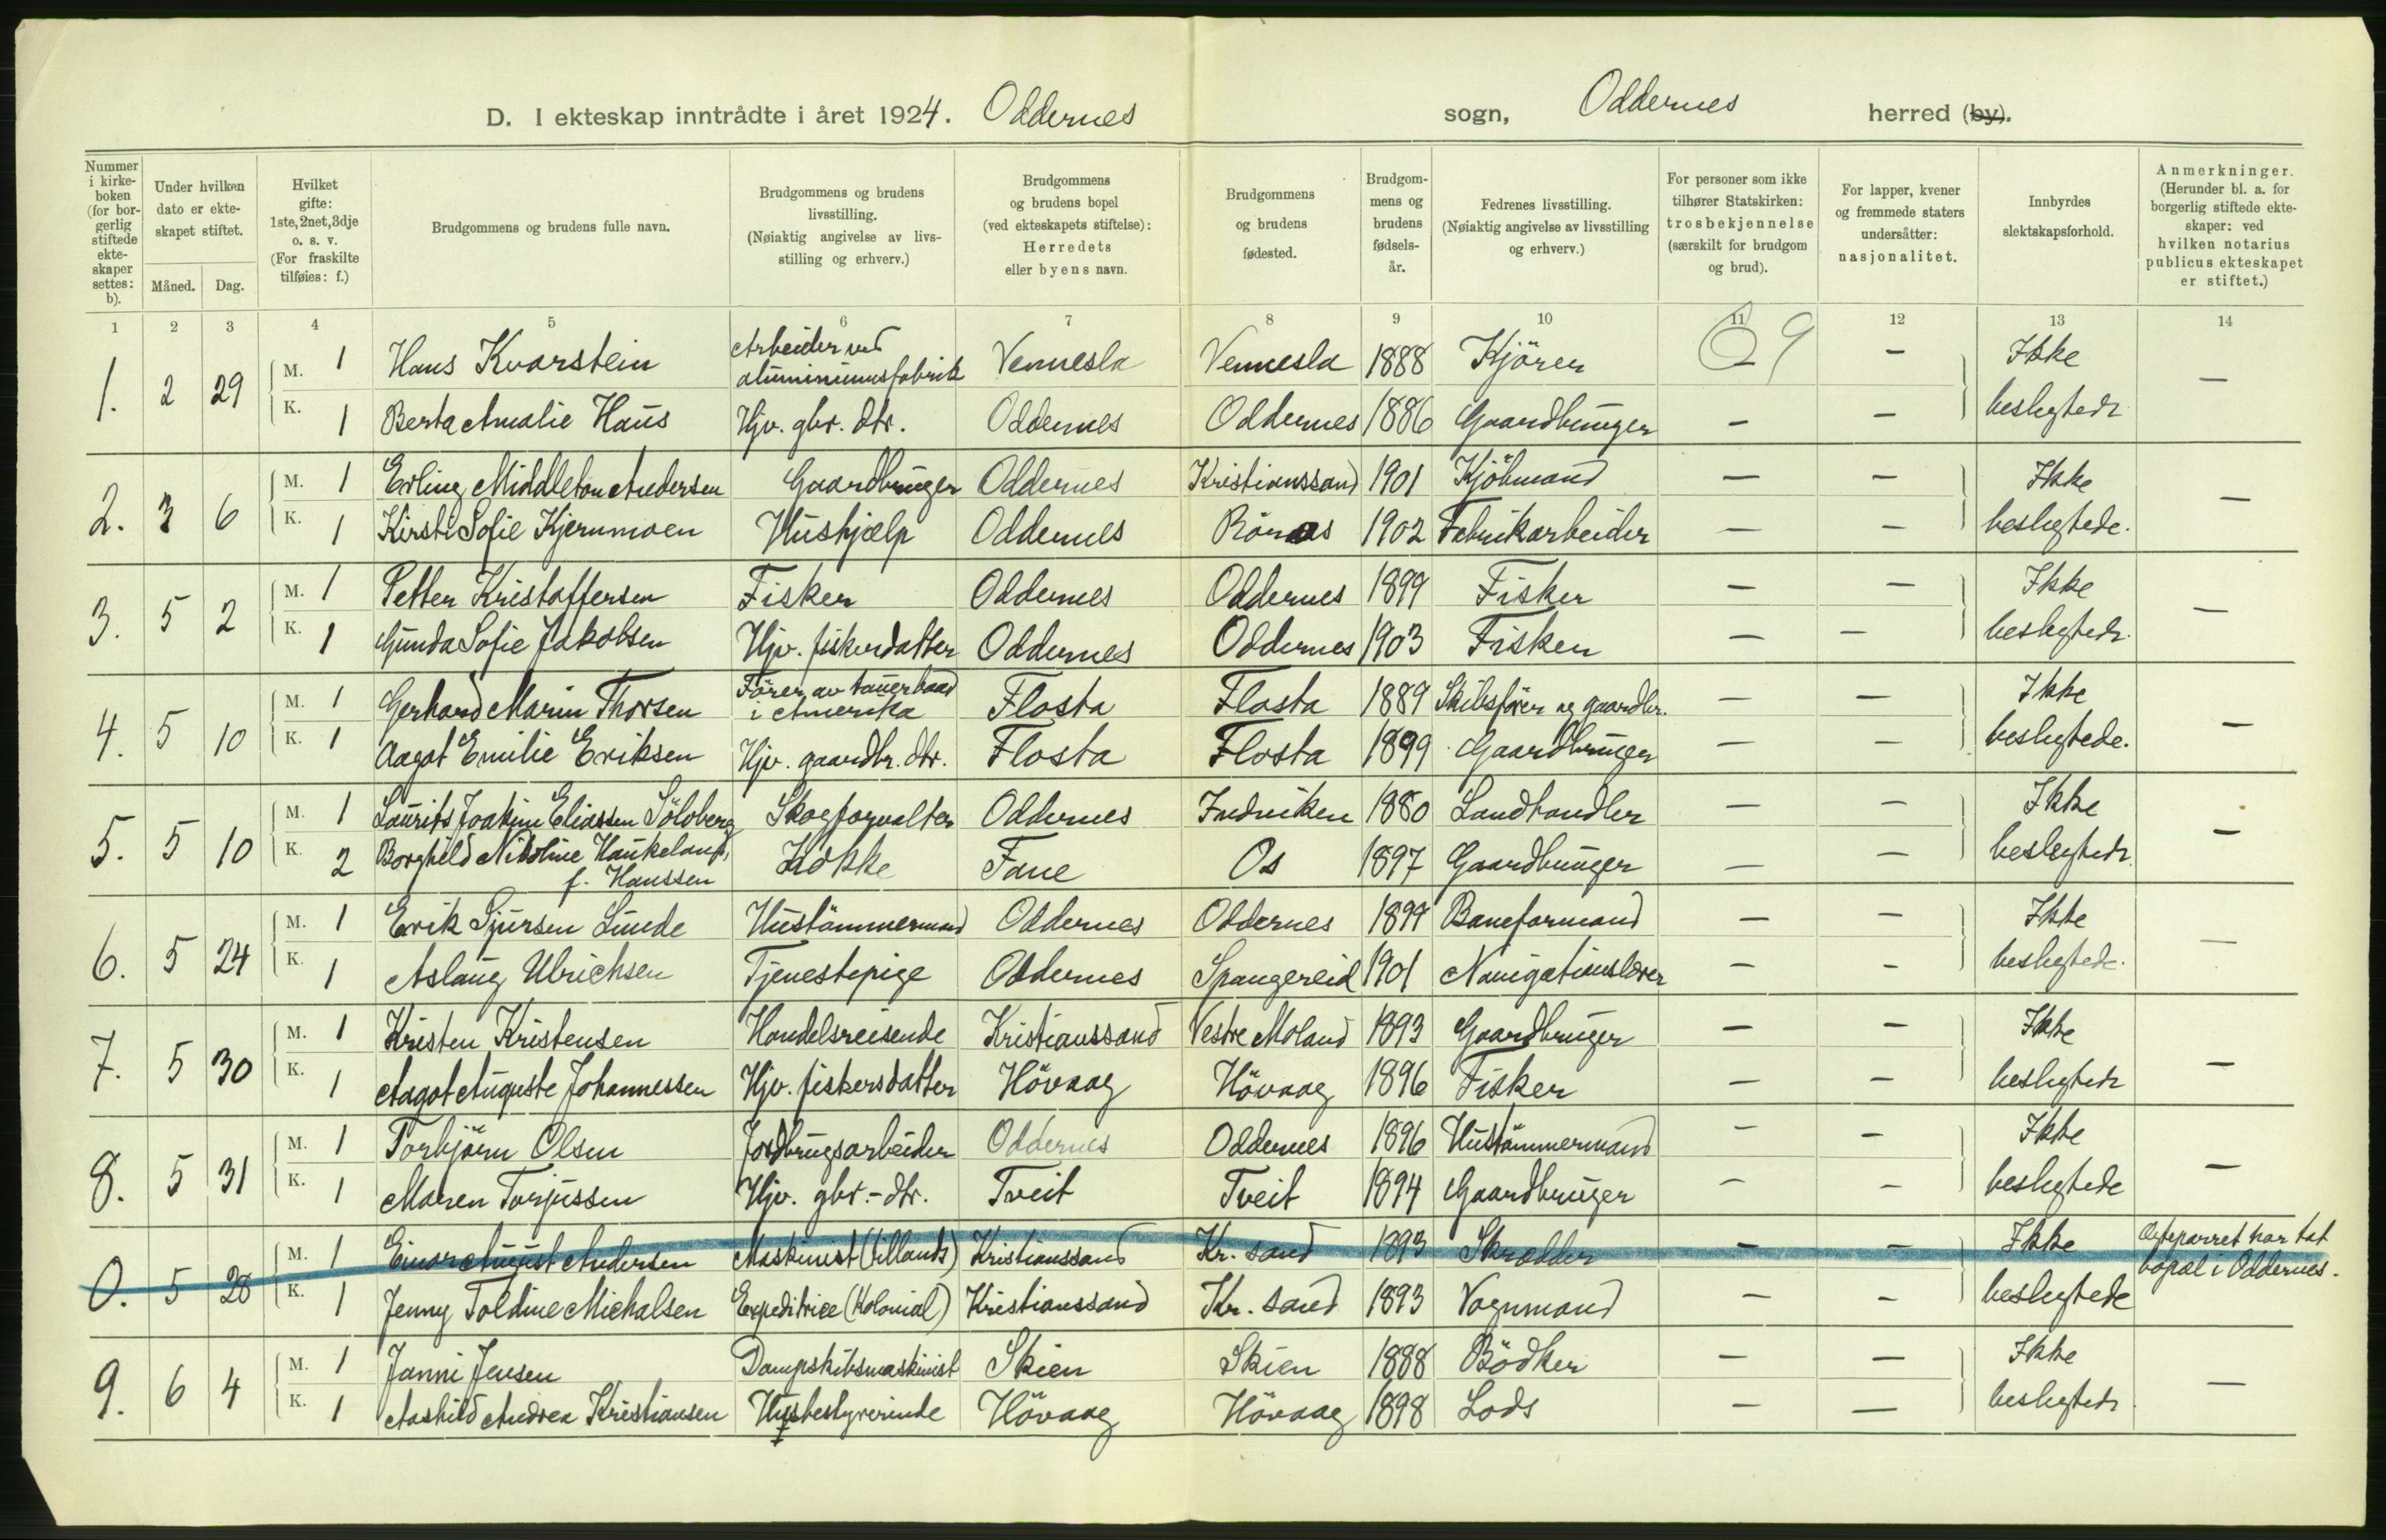 D. I ekteskap inntrådte i året 1924. Oddernes sogn, Oddernes herred (by).
Nummer i kirke-boken (for bor-gerlig stiftede ekte-skaper settes: b).
Under hvilken dato er ekte-skapet stiftet.
Måned. Dag.
Hvilket gifte: 1ste, 2net, 3dje o. s. v. (For fraskilte tilføies: f.)
Brudgommens og brudens fulle navn.
Brudgommens og brudens livsstilling. (Nøiaktig angivelse av livs-stilling og erhverv.)
Brudgommens og brudens bopel (ved ekteskapets stiftelse): Herredets eller byens navn.
Brudgommens og brudens fødested.
Brudgom-mens og brudens fødsels-år.
Fedrenes livsstilling. (Nøiaktig angivelse av livsstilling og erhverv.)
For personer som ikke tilhører Statskirken: trosbekjennelse (særskilt for brudgom og brud).
For lapper, kvener og fremmede staters undersåtter: nasjonalitet.
Innbyrdes slektskapsforhold.
Anmerkninger. (Herunder bl. a. for borgerlig stiftede ekte-skaper: ved hvilken notarius publicus ekteskapet er stiftet.)
1 2 3 4 5 6 7 8 9 10 11 12 13 14
1. 2 29 M. 1 Hans Kvarstein Arbeider ved aluminiumsfabrik Vennesla Vennesla 1888 Kjörer 9 — Ikke
K. 1 Berta Amalie Haus Hjv. gbr. dtr. Oddernes Oddernes 1886 Gaardbruger — — beslegtede —
2. 3 6 M. 1 Erling Middleton Andersen Gaardbruger Oddernes Kristianssand 1901 Kjöbmand — — Ikke
K. 1 Kirsti Sofie Kjernmoen Hushjælp Oddernes Röraas 1902 Fabrikarbeider — — beslegtede. —
3. 5 2 M. 1 Petter Kristoffersen Fisker Oddernes Oddernes 1899 Fisker — — Ikke
K. 1 Gunda Sofie Jakobsen Hjv. fiskerdatter Oddernes Oddernes 1903 Fisker — — beslegtede. —
4. 5 10 M. 1 Gerhard Marin Thorsen Förer av tauerbaad i Amerika Flosta Flosta 1889 Skibsförer og gaardbr. — — Ikke
K. 1 Aagot Emilie Eriksen Hjv. gaardbr. dtr. Flosta Flosta 1899 Gaardbruger — — beslegtede. —
5. 5 10 M. 1 Laurits Joakim Eliassen Sölvberg Skogforvalter Oddernes Indviken 1880 Landhandler — — Ikke
K. 2 Borghild Nikoline Haukeland, f. Hanssen Kokke Fane Os 1897 Gaardbruger — — beslegtede. —
6. 5 24 M. 1 Erik Sjursen Lunde Hustömmermand Oddernes Oddernes 1899 Baneformand — — Ikke
K. 1 Aslaug Ulrichsen Tjenestepige Oddernes Spangereid 1901 Navigationslærer — — beslegtede. —
7. 5 30 M. 1 Kristen Kristensen Handelsreisende Kristianssand Vestre Moland 1893 Gaardbruger — — Ikke
K. 1 Aagot Auguste Johannessen Hjv. fiskersdatter Hövaag Hövaag 1896 Fisker — — beslegtede —
8. 5 31 M. 1 Torbjörn Olsen Jordbrugsarbeider Oddernes Oddernes 1896 Hustömmermand — — Ikke
K. 1 Maren Torjussen Hjv. gbr.-dtr. Tveit Tveit 1894 Gaardbruger — — beslegtede —
0. 5 28 M. 1 Einar August Andersen Maskinist (tillands) Kristianssand Kr. sand 1893 Skrædder — — Ikke Egteparret har tat bopæl i Oddernes.
K. 1 Jenny Toldine Michalsen Expeditrice (Kolonial) Kristianssand Kr. sand 1893 Vognmand — — beslegtede
9. 6 4 M. 1 Janni Jensen Dampskibsmaskinist Skien Skien 1888 Bödker — — Ikke
K. 1 Aashild Andrea Kristiansen Husbestyrerinde Hövaag Hövaag 1898 Lods — — beslegtede —